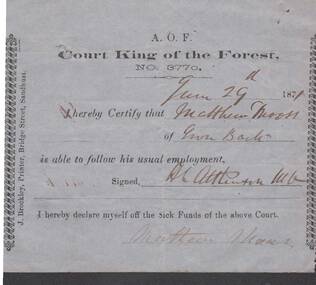 A. O. F.
Court King of the Forest,
NO. 3770.
June 29th 187
I hereby Certify that Matthew
of
is able to follow his usual employment,
Signed,
I hereby declare myself off the Sick Funds of the above Court.
Matthew
J. Brockley, Printer, Bridge Street, Sandhurst.